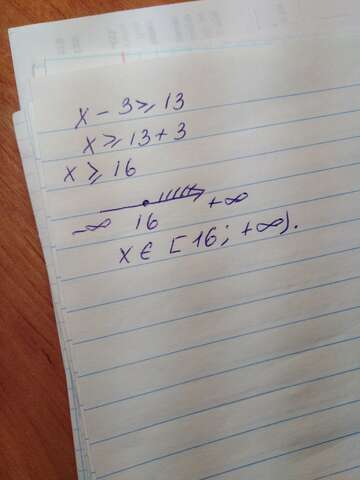 x - 3 ⩾ 13
x ⩾ 13 + 3
x ⩾ 16
-∞ 16 +∞
x ∈ [16; +∞).